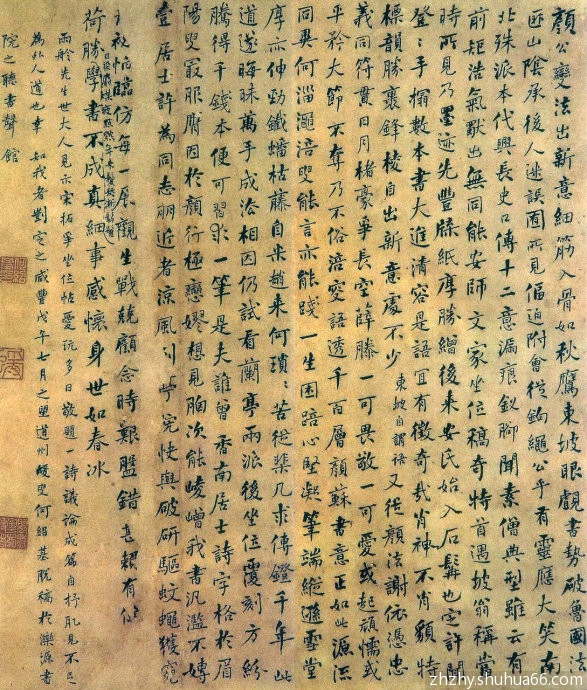 顏公變法出新意細筋入骨如秋鷹東坡眼覷書勢破魯國法
匪山陰承後人迷誤囿所見偪迫附會從鈎繩公乎有靈應大笑南
北殊派本代興長史口傳十二意漏痕釵腳聞素僧典型雖云有
前矩浩氣出無同能安師文家坐位稿奇特首遇坡翁稱當
時所見乃墨迹先豐牋紙厚勝繒後来安氏始入石髯也定許開
登〻手搨數本書大進清容是語宜有徵奇哉肖神不肖貌特
標韻勝裹鋒棱自出新意處不少東坡自謂語又從顏法謝依憑忠
義同符貫日月楮豪爭長空薛滕一可畏敬一可愛或起頑懦或
平矜大節不奪乃不俗涪叟語透千百層顏蘇書意正如此源流
同異何淄澠涪叟能言亦能踐一生困踣心堅凝筆端縱遜雪堂
厚亦伸勁鐵蟠枯藤自米趙来何瑣〻苦從棐几求傳鐙千年此
道遂晦昧萬手成沿相因仍試看蘭亭兩派後坐位覆刻方紛
騰得千錢本便可習求一筆是夫誰曾香南居士詩字格於眉
陽叟最服膺因於顏行極戀嫪想見胸次能崚嶒我書汎濫不專
壹居士許為同志朋近者涼風引快與破研驅蚊蠅獲窺
秘怕臨仿每一展觀生戰兢顧念時艱盤錯甚賴有
荷勝學書不成真細事感懷身世如春冰
雨舲先生世大人見示宋拓爭坐位帖愛玩多日敬題一詩議論成篇自抒肌見不足
為外人道也幸如我者對定之咸豐戊午七月之望道州蝯叟何紹基脫稿於濼源書
院之聽書聲館
zhzhy.shuhua66.com